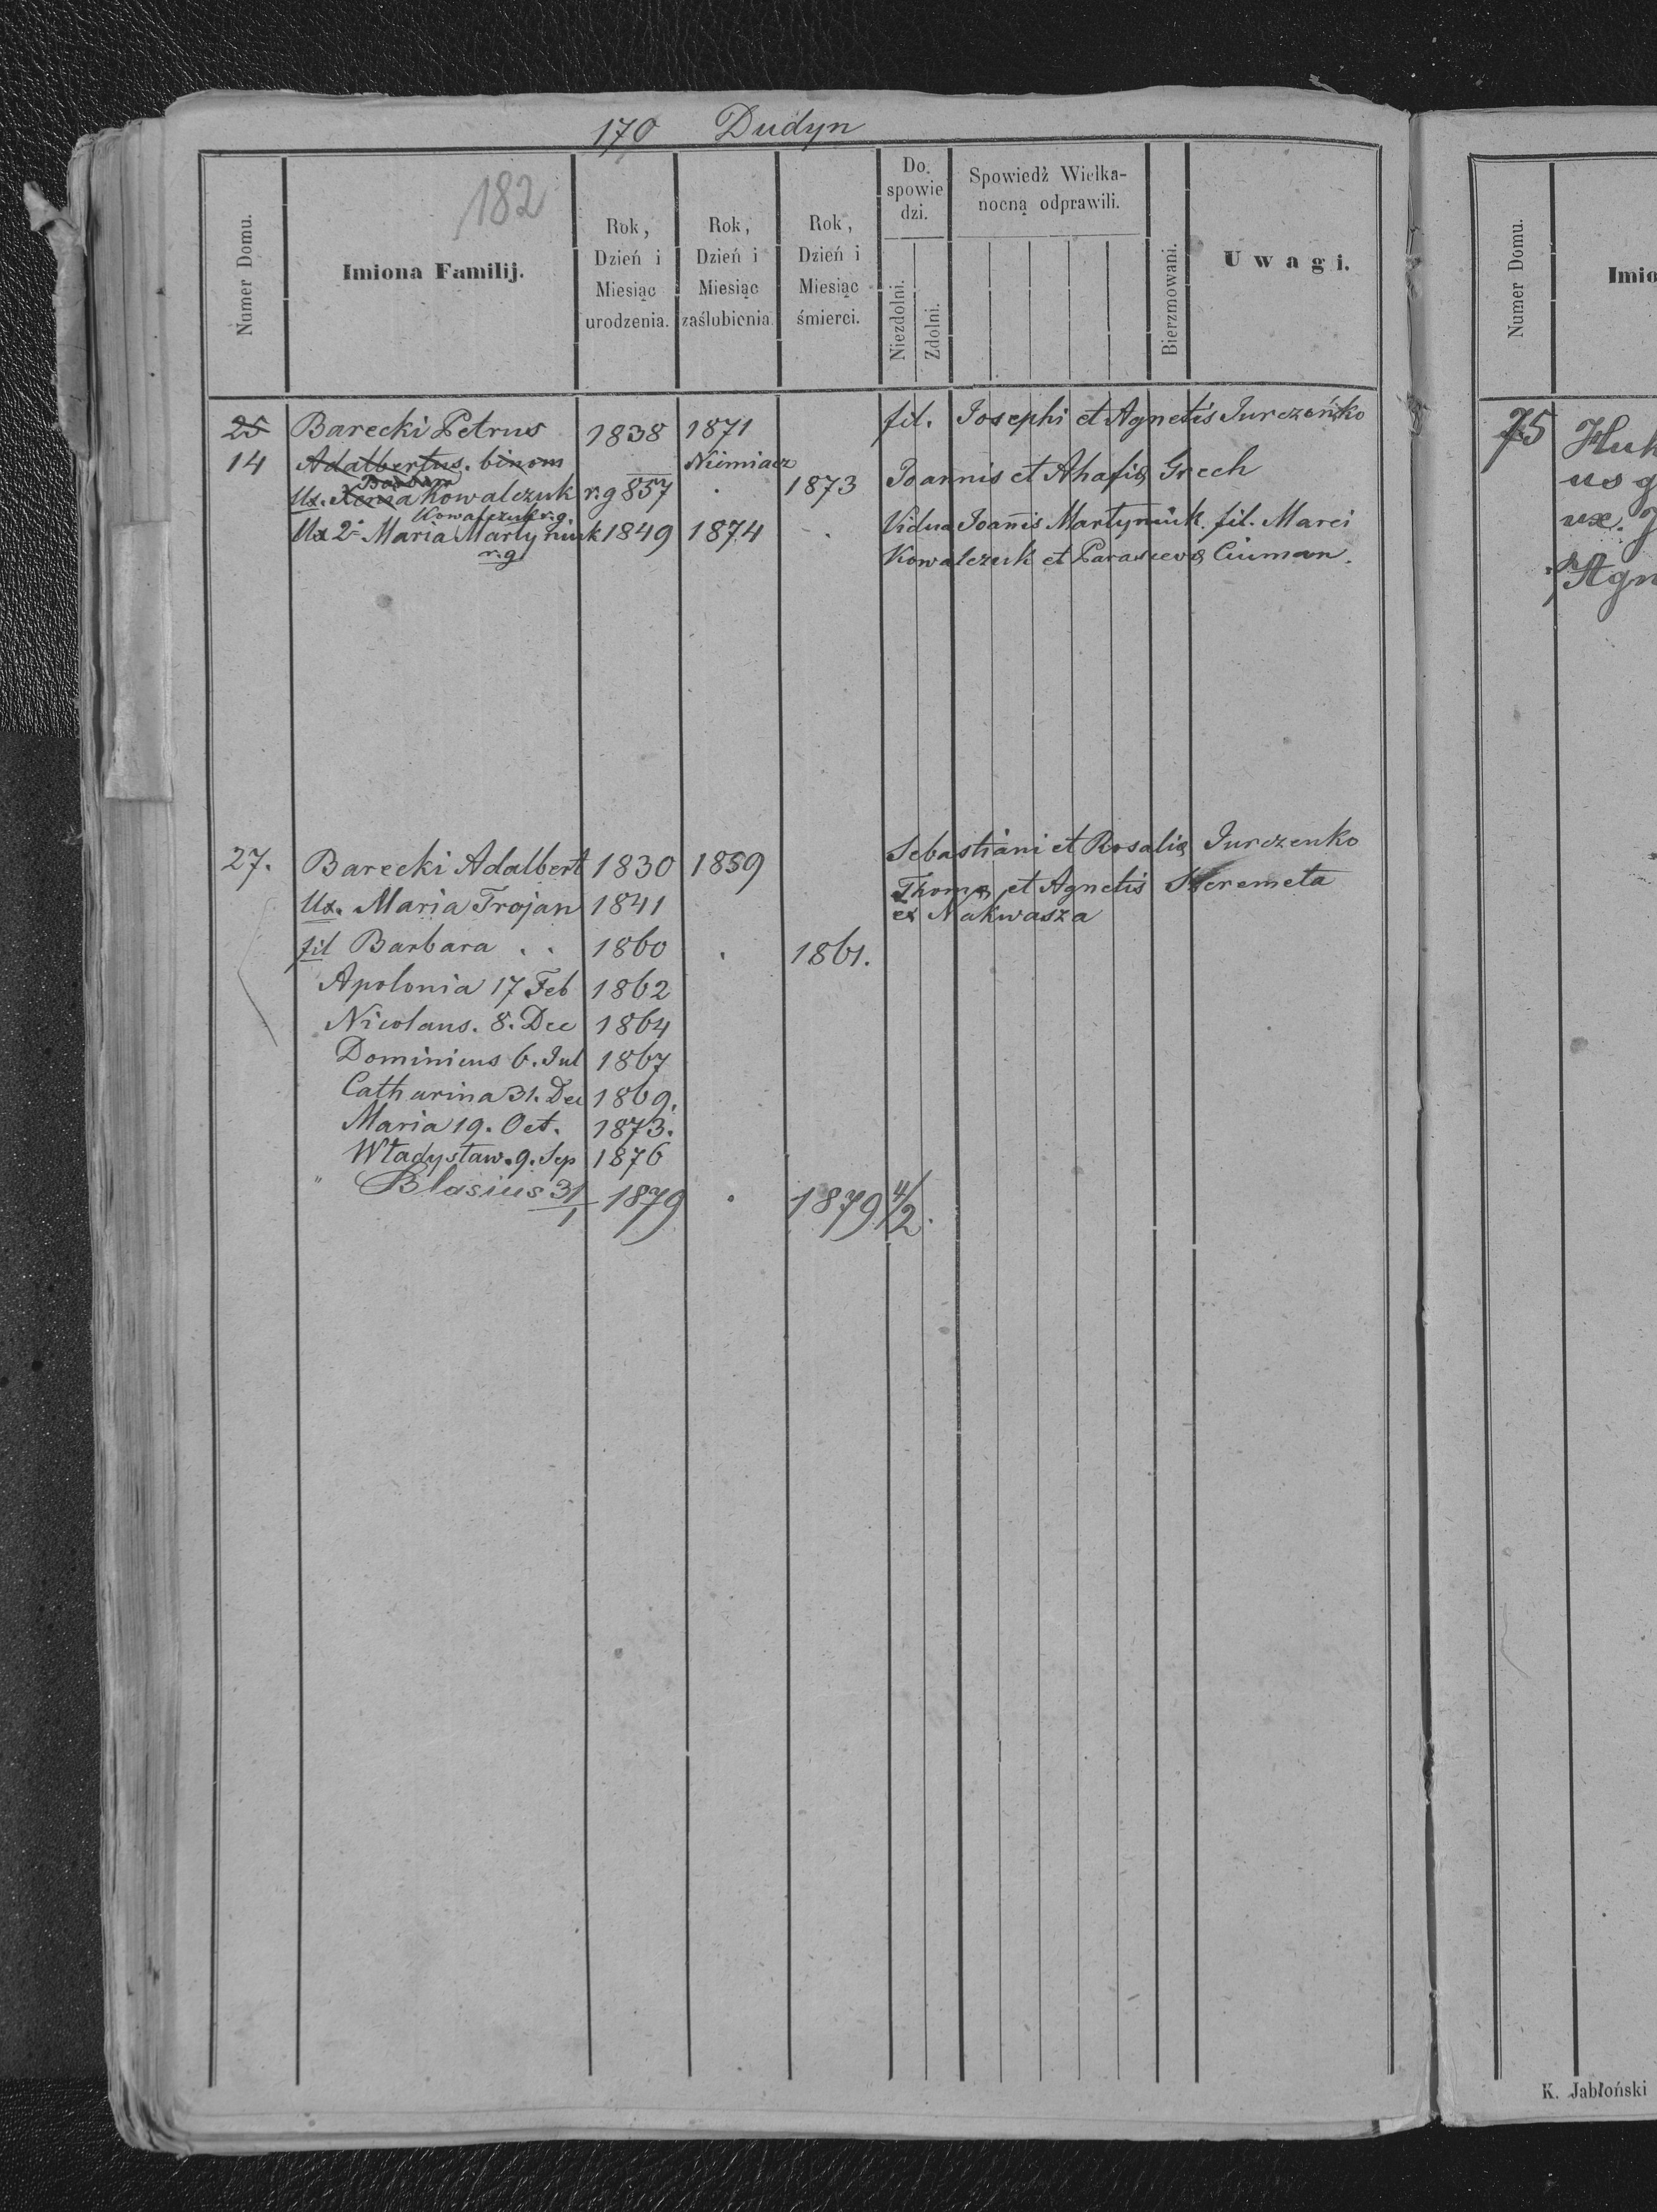 170 Dudyn
182
Numer Domu.
Imiona Familij.
Rok, Dzień i Miesiąc urodzenia.
Rok, Dzień i Miesiąc zaślubienia.
Rok, Dzień i Miesiąc śmierci.
Do spowiedzi.
Niezdolni.
Zdolni.
Spowiedź Wielkanocną odprawili.
Bierzmowani.
Uwagi.
25 Barecki Petrus 1838 1871 fil. Josephi et Agnetis Jurczeńko
14 Adalbertus. binom Niemiacz
Barbara
Ux. Xenia Kowalczuk r.g 857 . 1873 Joannis et Ahafiæ Grech
Kowalczuk r.g.
Ux 2ᵃ Maria Martyniuk 1849 1874 . Vidua Joannis Martyniuk fil. Marci
r.g Kowalczuk et Parascevæ Ciuman.
27. Barecki Adalbert 1830 1859 Sebastiani et Rosaliæ Jurczenko
Ux. Maria Trojan 1841 Thomæ et Agnetis Szeremeta
ex Nakwasza
fil Barbara . . 1860 . 1861.
Apolonia 17 Feb 1862
Nicolaus. 8. Dec 1864
Dominicus 6. Jul 1867
Catharina 31. Dec 1869.
Maria 19. Oct. 1873.
Władysław. 9. Sep 1876
" Blasius 31/1 1879 . 1879 4/2.
Numer Domu.
Imio
75 Huk
us g
ux. J
Agn
K. Jabłoński